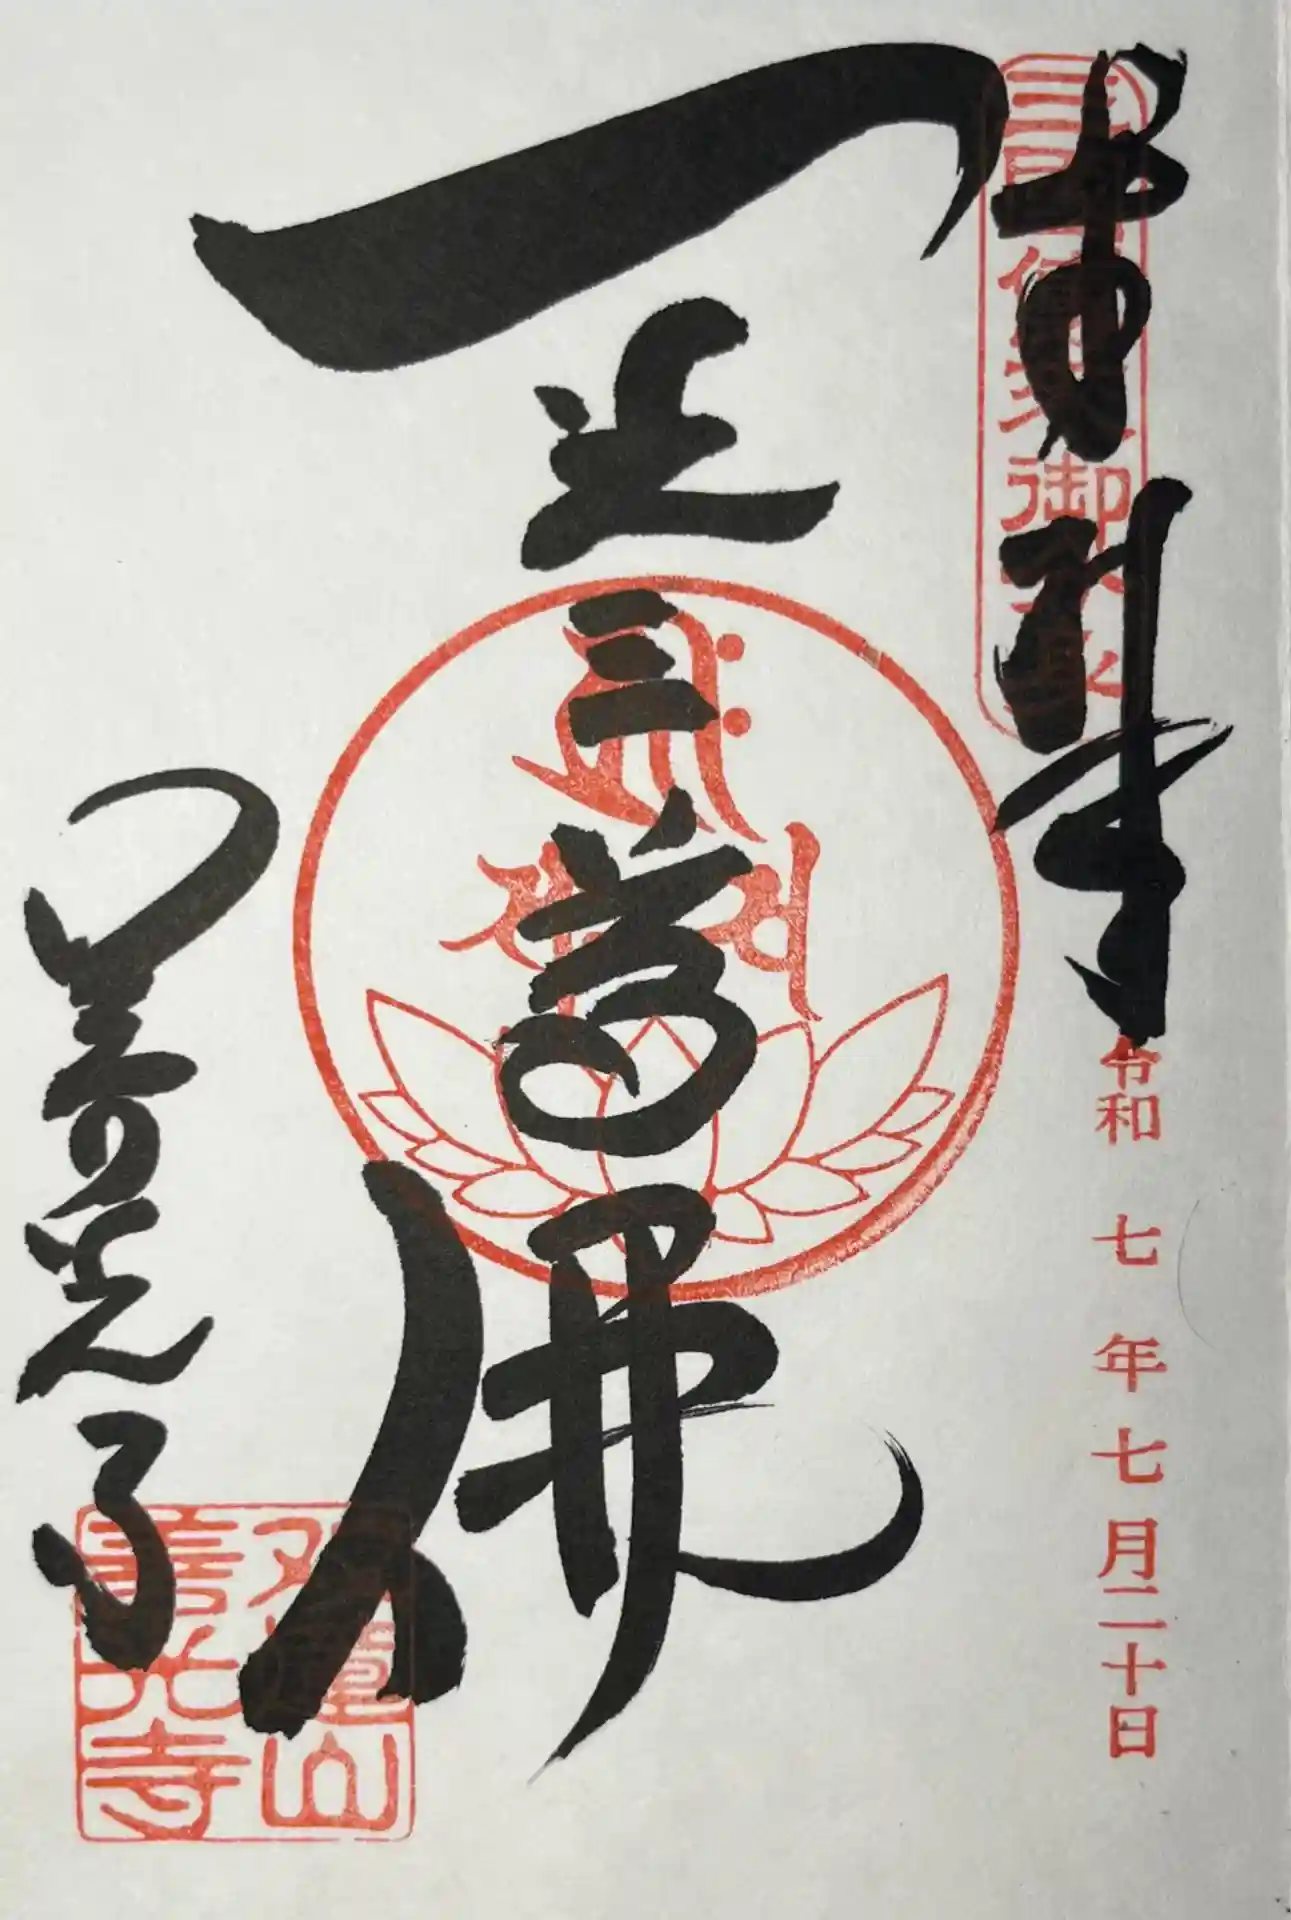 奉拝
三国傳来御分身
令和七年七月二十日
一光三尊佛
善光寺
双蓮山
善光寺